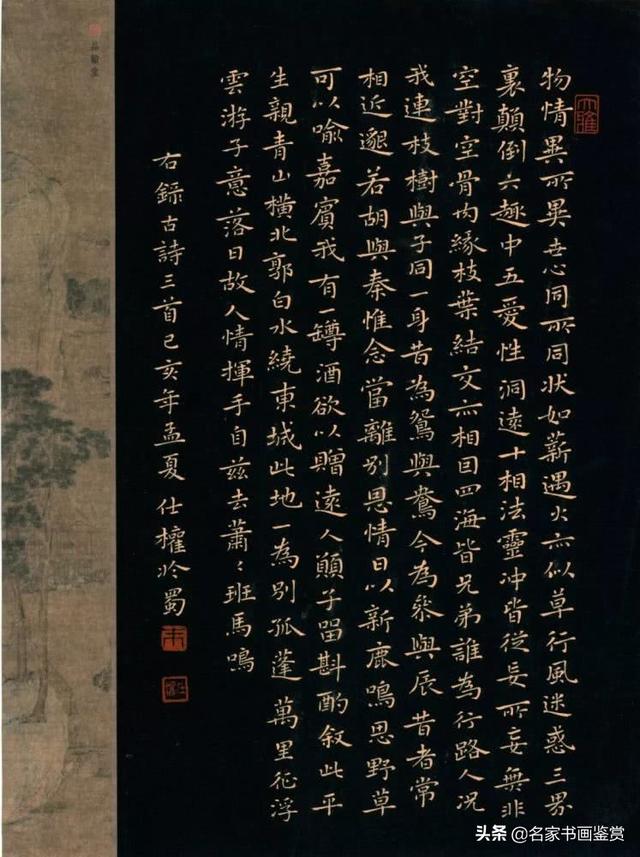 物情異所異世心同所同狀如薪遇火亦似草行風迷惑三界
裏顛倒六趣中五愛性洞遠十相法靈沖皆從妄所妄無非
空對空骨肉緣枝葉結交亦相因四海皆兄弟誰為行路人況
我連枝樹與子同一身昔為鴛與鴦今為參與辰昔者常
相近邈若胡與秦惟念當離別恩情日以新鹿鳴思野草
可以喻嘉賓我有一罇酒欲以贈遠人願子留斟酌敘此平
生親青山橫北郭白水繞東城此地一為別孤蓬萬里征浮
雲游子意落日故人情揮手自茲去蕭〻班馬鳴
右錄古詩三首己亥年孟夏仕權於蜀
大雅
头条 @名家书画鉴赏